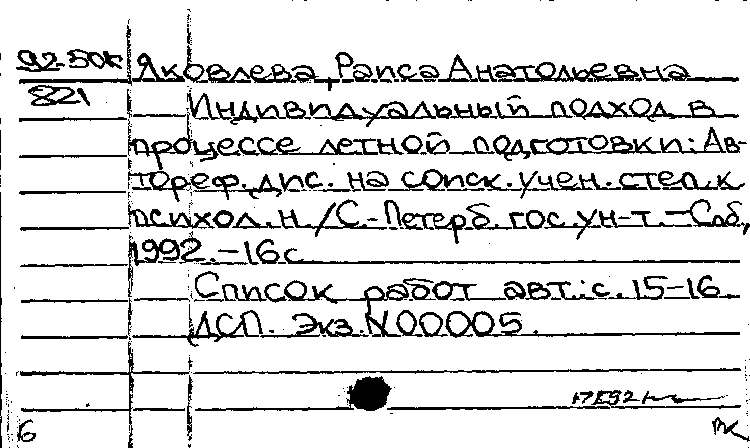 92-50к Яковлева, Раиса Анатольевна
821 Индивидуальный подход в
процессе летной подготовки: Ав-
тореф. дис. на соиск. учен. степ. к.
психол. н. / С.-Петерб. гос. ун-т. - Спб,
1992. - 16 с
Список работ авт.: с. 15-16.
ДСП. Экз. N 00005.
б